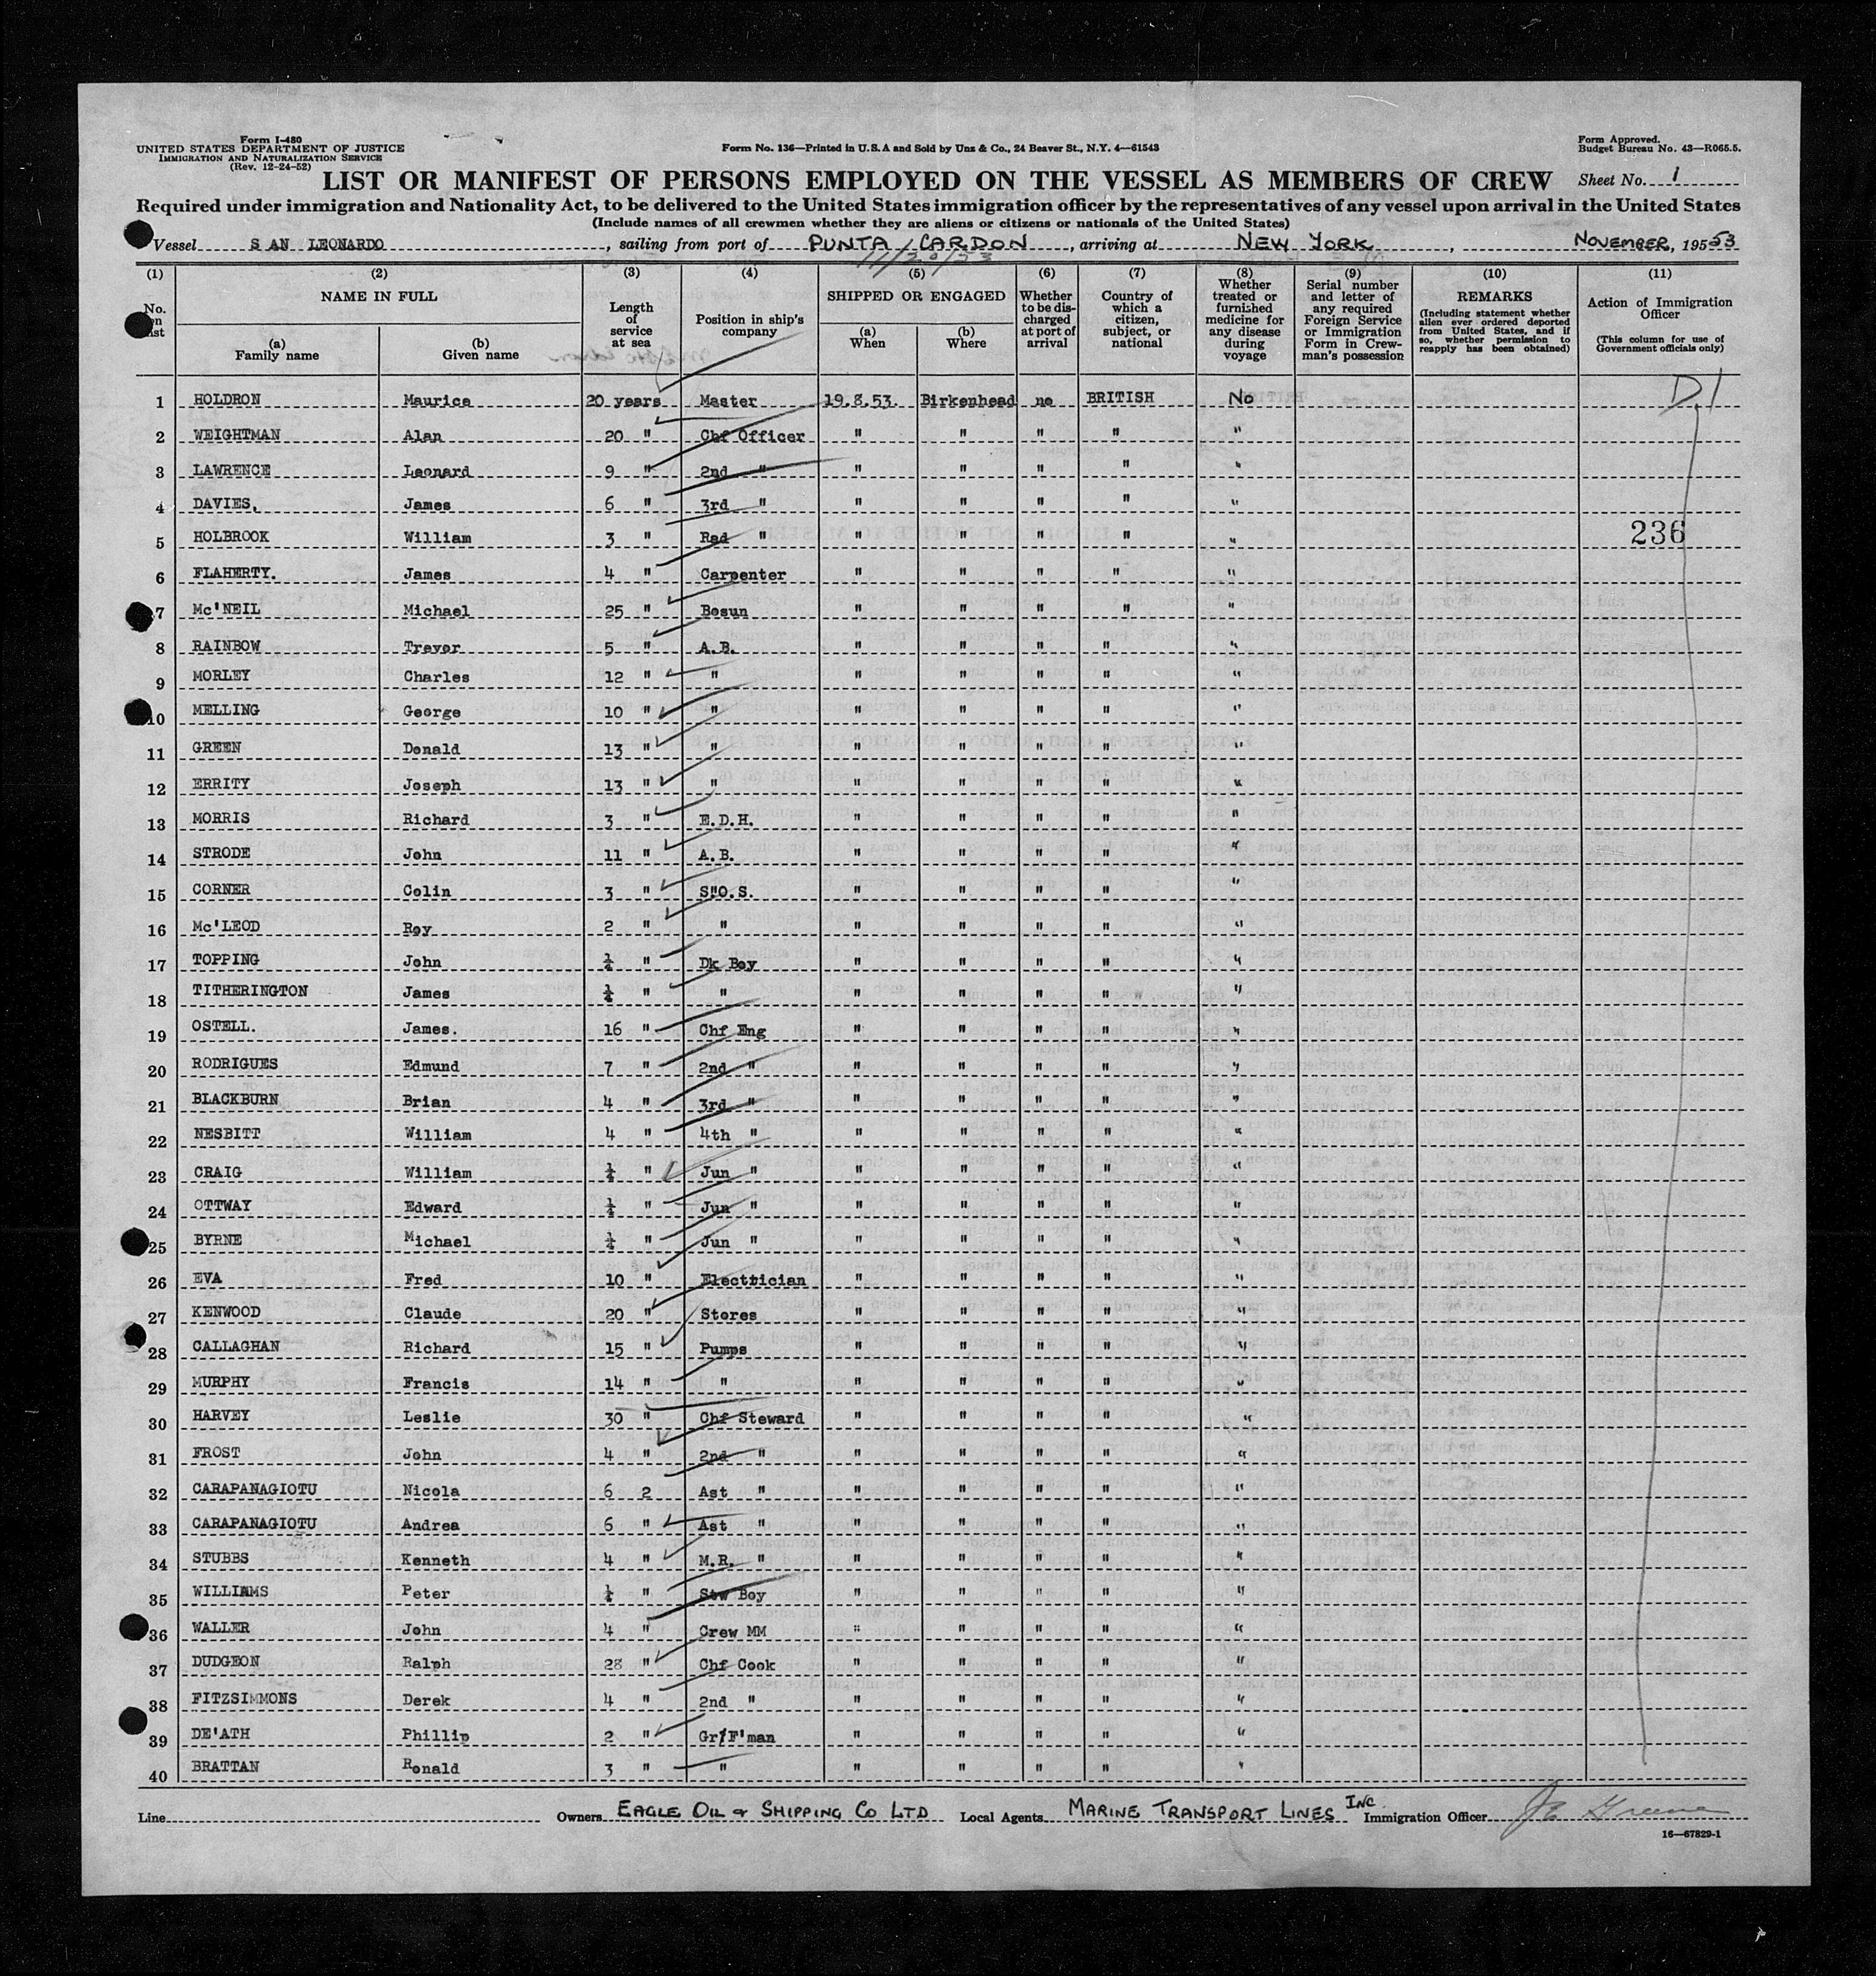 Form I-480
UNITED STATES DEPARTMENT OF JUSTICE
IMMIGRATION AND NATURALIZATION SERVICE
(Rev. 12-24-52)
Form No. 136—Printed in U.S.A and Sold by Unz & Co., 24 Beaver St., N.Y. 4—61543
Form Approved.
Budget Bureau No. 43—R065.5.
LIST OR MANIFEST OF PERSONS EMPLOYED ON THE VESSEL AS MEMBERS OF CREW
Sheet No. 1
Required under immigration and Nationality Act, to be delivered to the United States immigration officer by the representatives of any vessel upon arrival in the United States
(Include names of all crewmen whether they are aliens or citizens or nationals of the United States)
Vessel S AN LEONARDO, sailing from port of PUNTA CARDON, arriving at NEW YORK, NOVEMBER, 195 53
11/20/53
(1) (2) (3) (4) (5) (6) (7) (8) (9) (10) (11)
No. on List
NAME IN FULL
(a) Family name
(b) Given name
Length of service at sea
Position in ship's company
SHIPPED OR ENGAGED
(a) When
(b) Where
Whether to be discharged at port of arrival
Country of which a citizen, subject, or national
Whether treated or furnished medicine for any disease during voyage
Serial number and letter of any required Foreign Service or Immigration Form in Crewman's possession
REMARKS
(Including statement whether alien ever ordered deported from United States, and if so, whether permission to reapply has been obtained)
Action of Immigration Officer
(This column for use of Government officials only)
1 HOLDRON Maurice 20 years Master 19.8.53. Birkenhead no BRITISH No D.1
2 WEIGHTMAN Alan 20 " Chf Officer " " " " "
3 LAWRENCE Leonard 9 " 2nd " " " " " "
4 DAVIES, James 6 " 3rd " " " " " "
5 HOLBROOK William 3 " Rad " " " " " " 236
6 FLAHERTY. James 4 " Carpenter " " " " "
7 Mc'NEIL Michael 25 " Bosun " " " " "
8 RAINBOW Trevor 5 " A.B. " " " " "
9 MORLEY Charles 12 " " " " " " "
10 MELLING George 10 " " " " " " "
11 GREEN Donald 13 " " " " " " "
12 ERRITY Joseph 13 " " " " " " "
13 MORRIS Richard 3 " E.D.H. " " " " "
14 STRODE John 11 " A.B. " " " " "
15 CORNER Colin 3 " S"O.S. " " " " "
16 Mc'LEOD Roy 2 " " " " " " "
17 TOPPING John " Dk Boy " " " " "
18 TITHERINGTON James " " " " " " "
19 OSTELL. James. 16 " Chf Eng " " " " "
20 RODRIGUES Edmund 7 " 2nd " " " " " "
21 BLACKBURN Brian 4 " 3rd " " " " " "
22 NESBITT William 4 " 4th " " " " " "
23 CRAIG William " Jun " " " " " "
24 OTTWAY Edward " Jun " " " " " "
25 BYRNE Michael " Jun " " " " " "
26 EVA Fred 10 " Electrician " " " " "
27 KENWOOD Claude 20 " Stores " " " " "
28 CALLAGHAN Richard 15 " Pumps " " " " "
29 MURPHY Francis 14 " " " " " " "
30 HARVEY Leslie 30 " Chf Steward " " " " "
31 FROST John 4 " 2nd " " " " " "
32 CARAPANAGIOTU Nicola 6 2 Ast " " " " " "
33 CARAPANAGIOTU Andrea 6 " Ast " " " " " "
34 STUBBS Kenneth 4 " M.R. " " " " " "
35 WILLIAMS Peter " Stw Boy " " " " "
36 WALLER John 4 " Crew MM " " " " "
37 DUDGEON Ralph 28 " Chf Cook " " " " "
38 FITZSIMMONS Derek 4 " 2nd " " " " " "
39 DE'ATH Phillip 2 " Gr/F'man " " " " "
40 BRATTAN Ronald 3 " " " " " " "
Line Owners EAGLE OIL & SHIPPING CO LTD Local Agents MARINE TRANSPORT LINES INC. Immigration Officer
16—67829-1